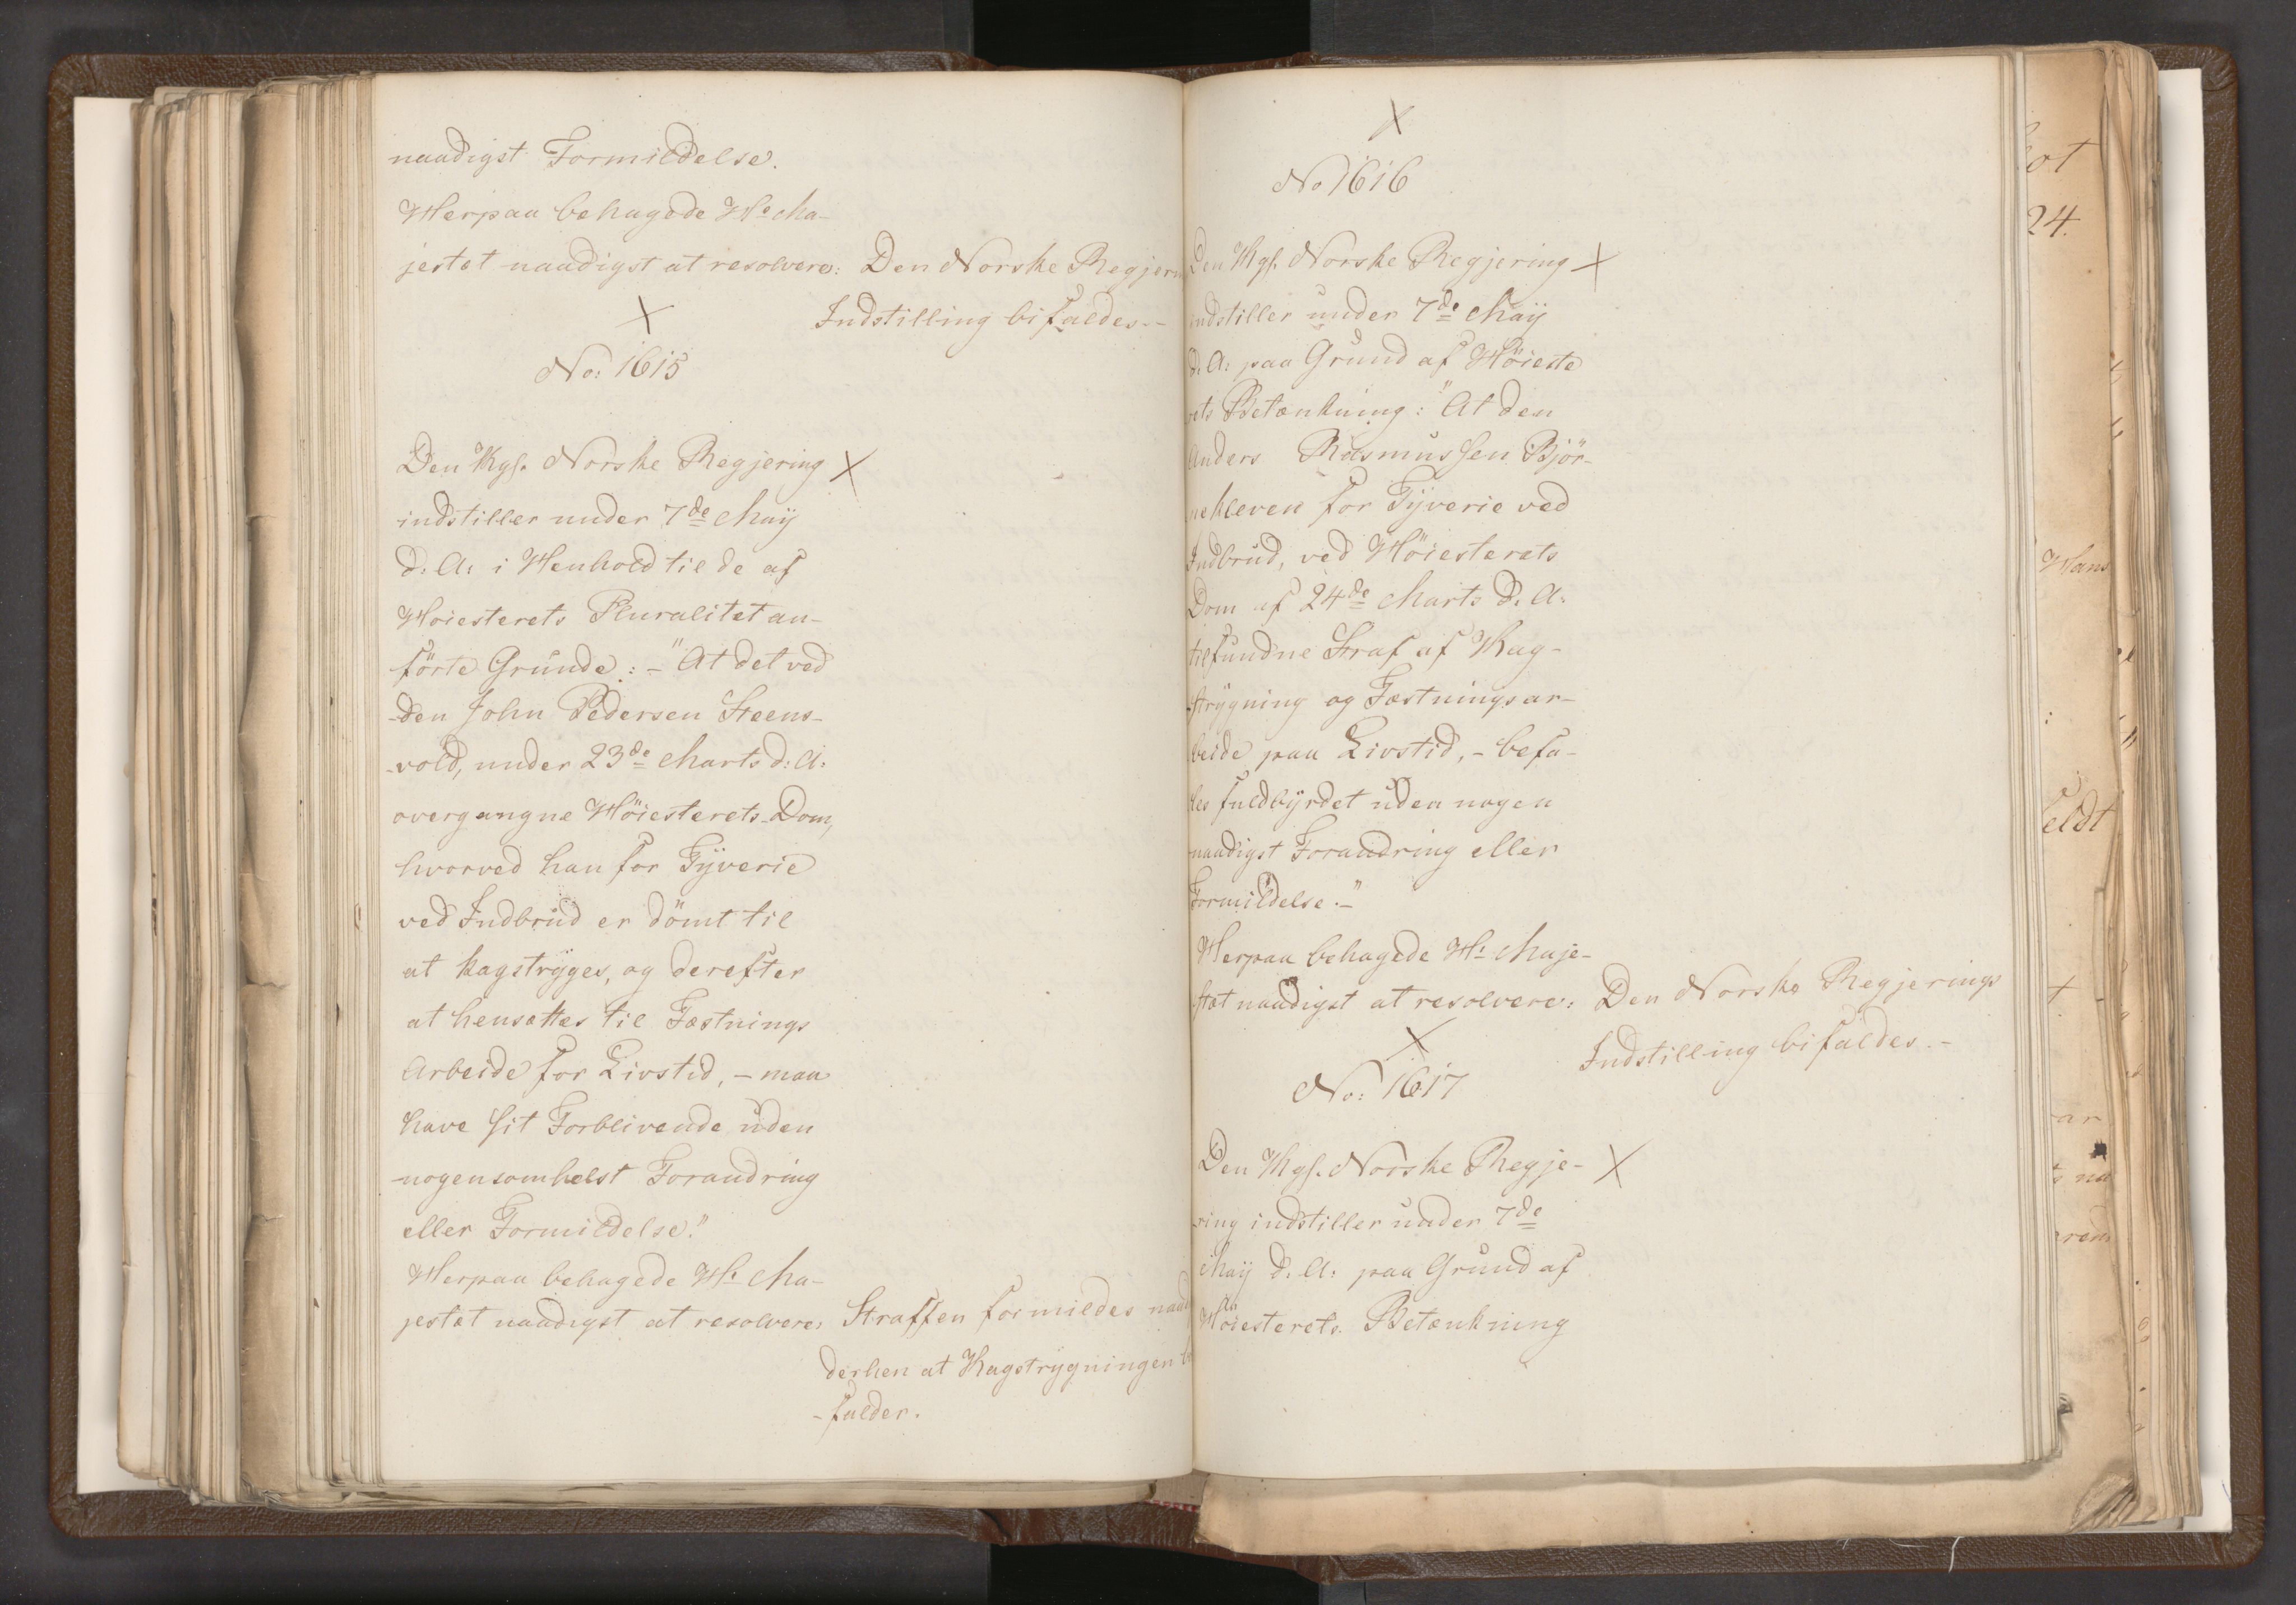 naadigst Formildelse.
Herpaa behagede Hs. Ma-
jestæt naadigst at resolvere: Den Norske Regjer
Indstilling bifaldes.-
No: 1615
Den Kgl. Norske Regjering
indstiller under 7de May
d: A: i Henhold til de af
Høiesterets Pluralitet an-
förte Grunde: - "At det ved
den John Pedersen Steens-
vold, under 23de Marts d: A:
overgangne Höiesterets Dom,
hvorved han for Tyverie
ved Indbrud er dömt til
at kagstryges, og derefter
at hensættes til Fæstnings
Arbeide for Livstid, - maa
have sit Forblivende uden
nogensomhelst Forandring
eller Formildelse."
Herpaa behagede Hs. Ma-
jestæt naadigst at resolvere: Straffen formildes naad
derhen at Kagstrygningen
-falder.
No 1616
Den Kgl. Norske Regjering
indstiller under 7de May
d. A: paa Grund af Höieste
rets Betænkning: "At den
Anders Rasmussen Björ-
nekleven for Tyverie ved
Indbrud, ved Höiesterets
Dom af 24de Marts d. A:
tilfundne Straf af Kag-
strygning og Fæstningsar-
beide paa Livstid, - befa-
les fuldbyrdet uden nogen
naadigst Forandring eller
Formildelse."-
Herpaa behagede Hs. Maje-
stæt naadigst at resolvere: Den Norske Regjerings
Indstilling bifaldes.-
No: 1617
Den Kgl. Norske Regje-
ring indstiller under 7de
May d. A: paa Grund af
Höiesterets Betænkning
24.
Hans